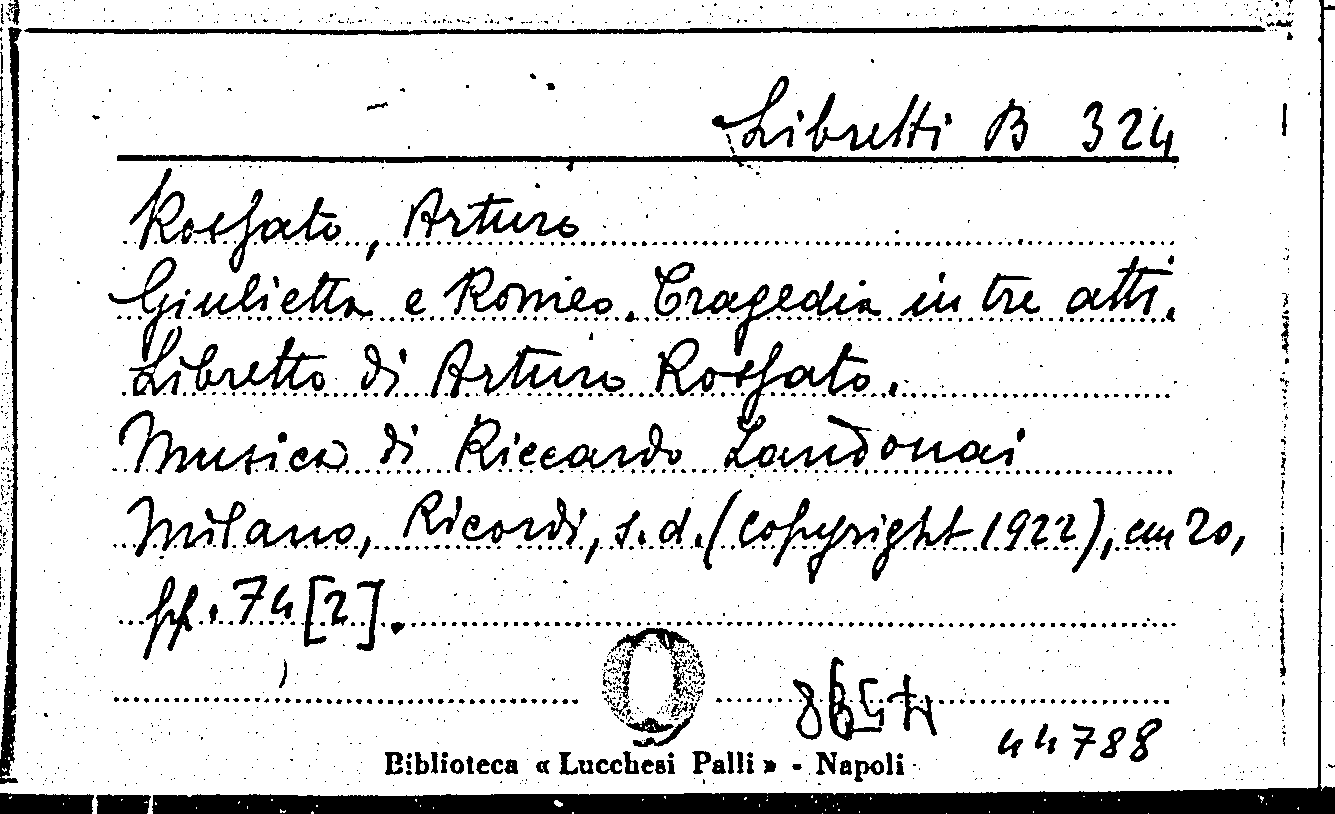 Libretti B 324
Rossato, Arturo
Giulietta e Romeo. Tragedia in tre atti.
Libretto di Arturo Rossato.
Musica di Riccardo Zandonai
Milano, Ricordi, s.d. (copyright 1922), cm 20,
pp. 74 [2].
44788
Biblioteca « Lucchesi Palli » - Napoli